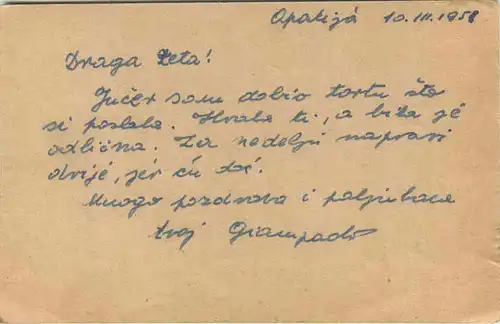 Opatija 10.III.1958
Draga Zeta!
Jučer sam dobio tortu što
si poslala. Hvala ti, a bila je
odlična. Za nedelju napravi
dvije, jer ću doć.
Mnogo pozdrava i poljubaca
tvoj Giampaolo